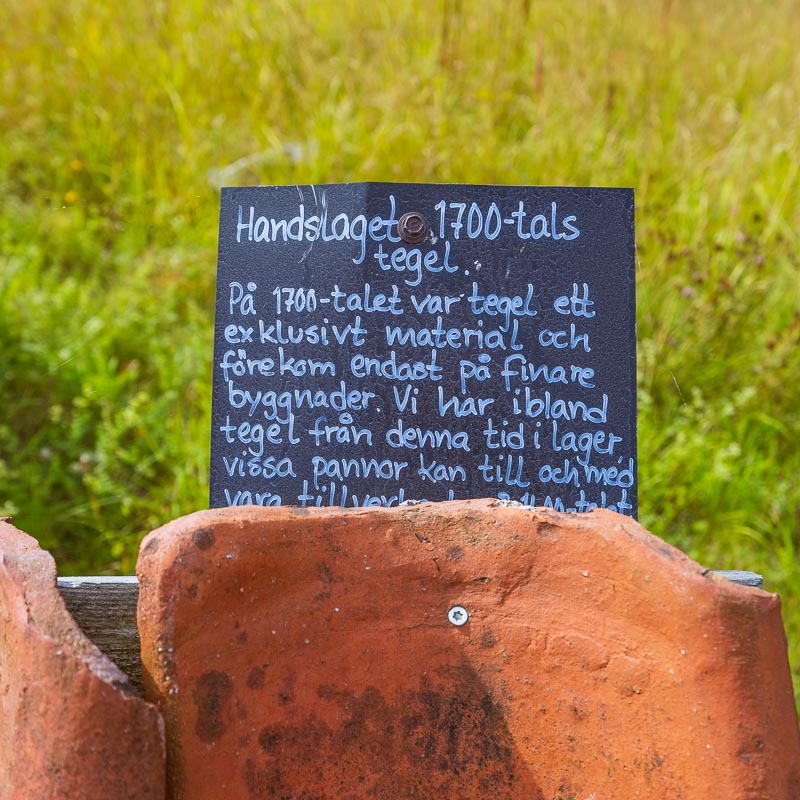 Handslaget 1700-tals
tegel.
På 1700-talet var tegel ett
exklusivt material och
förekom endast på finare
byggnader. Vi har ibland
tegel från denna tid i lager
vissa pannor kan till och med
vara